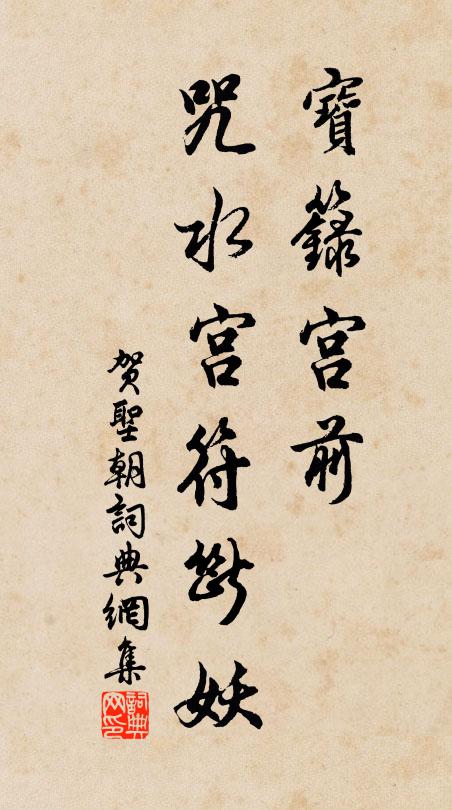 寶籙宫前
咒水宫符斷妖
贺聖朝詞典網集
詞典网印